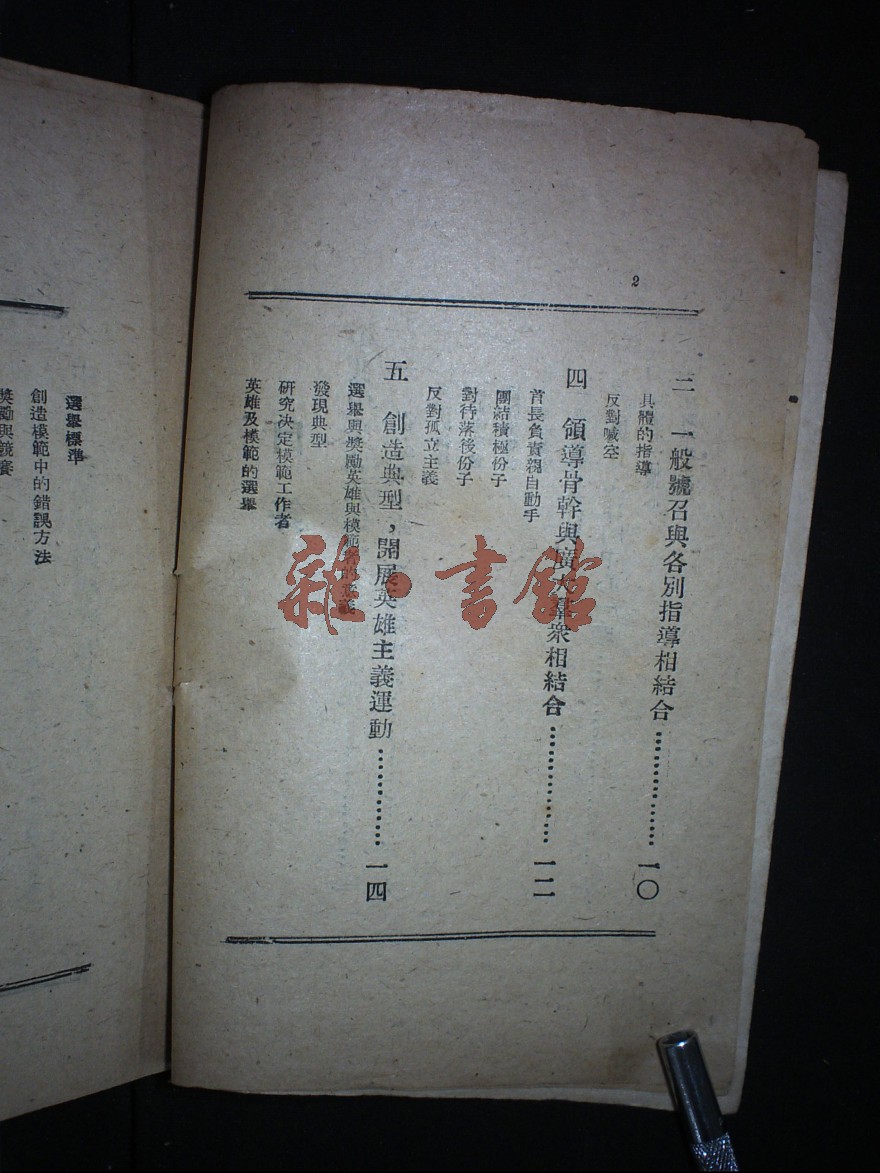 2
三　一般號召與各別指導相結合……………一〇
具體的指導
反對喊空
四　領導骨幹與廣大羣衆相結合……………一二
首長負責親自動手
團結積極份子
對待落後份子
反對孤立主義
五　創造典型，開展英雄主義運動……………一四
選舉與獎勵英雄與模範者的意義
發現典型
研究决定模範工作者
英雄及模範的選舉
選舉標準
創造模範中的錯誤方法
獎勵與競賽
雜·書館